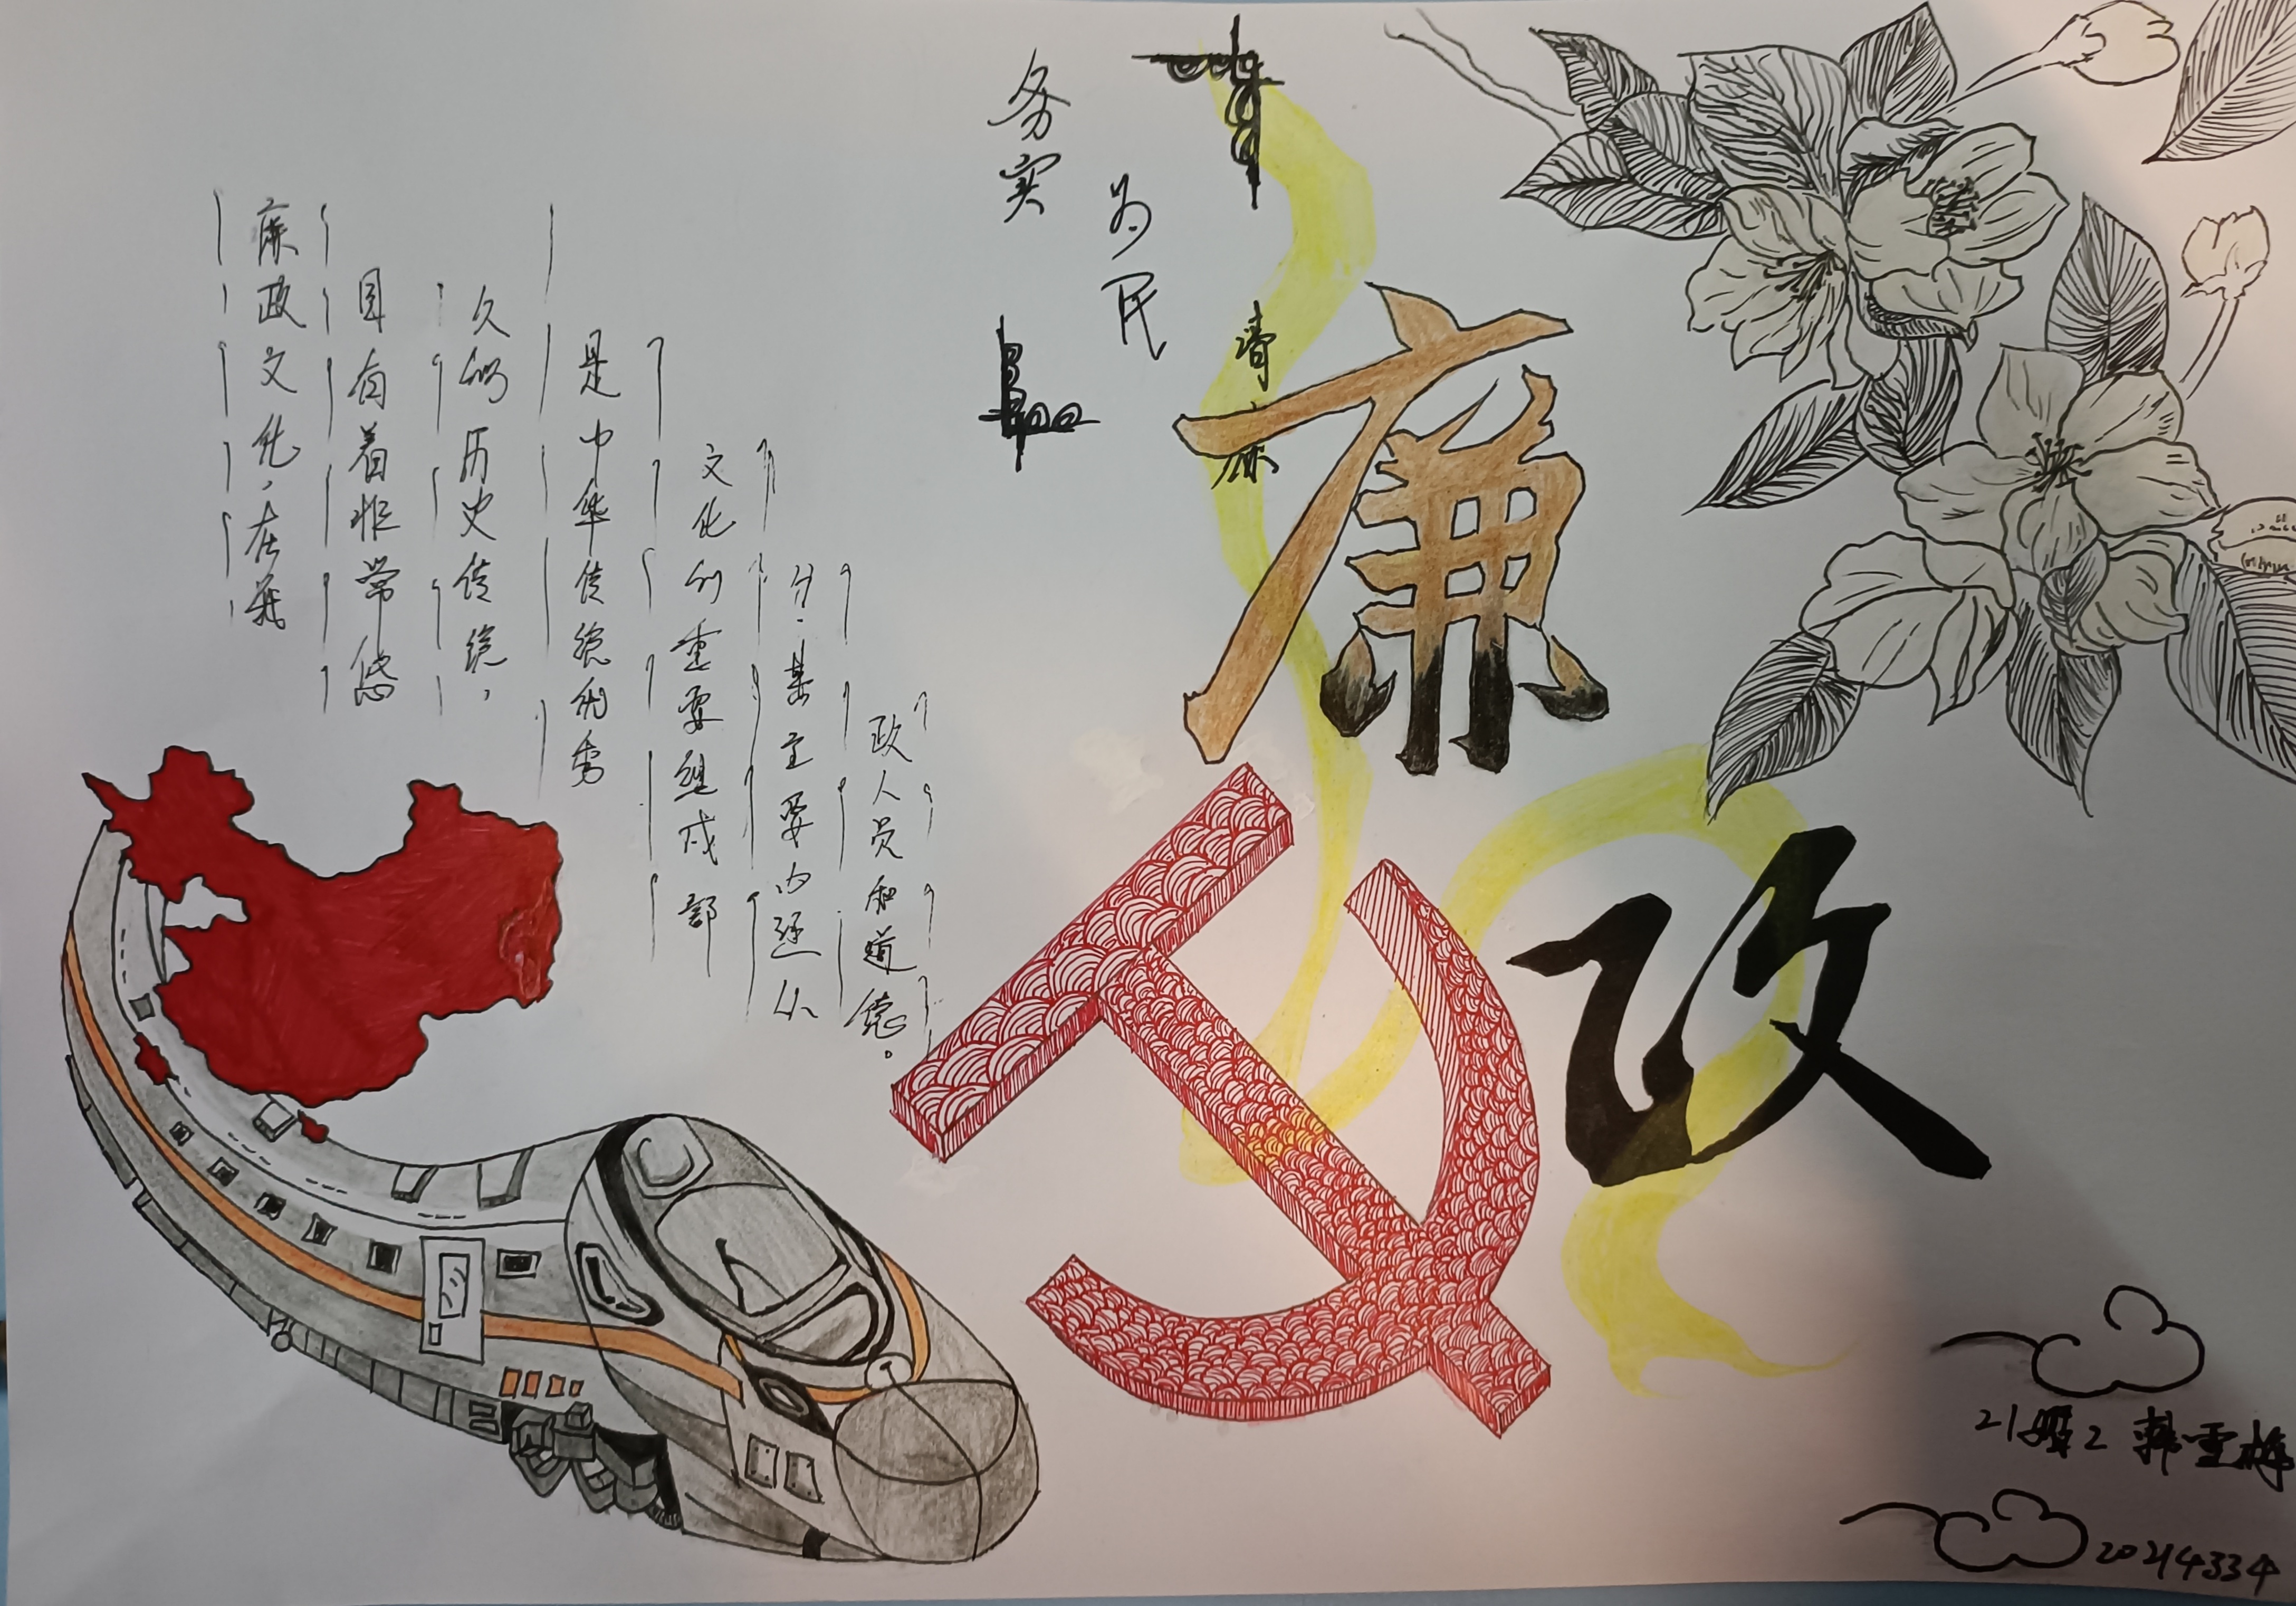 廉政文化,在我
国有着非常悠
久的历史传统,
是中华传统优秀
文化的重要组成部
分.其主要内从
政人员和道德。
务实
为民
清廉
廉
政
韩雪梅
20214334